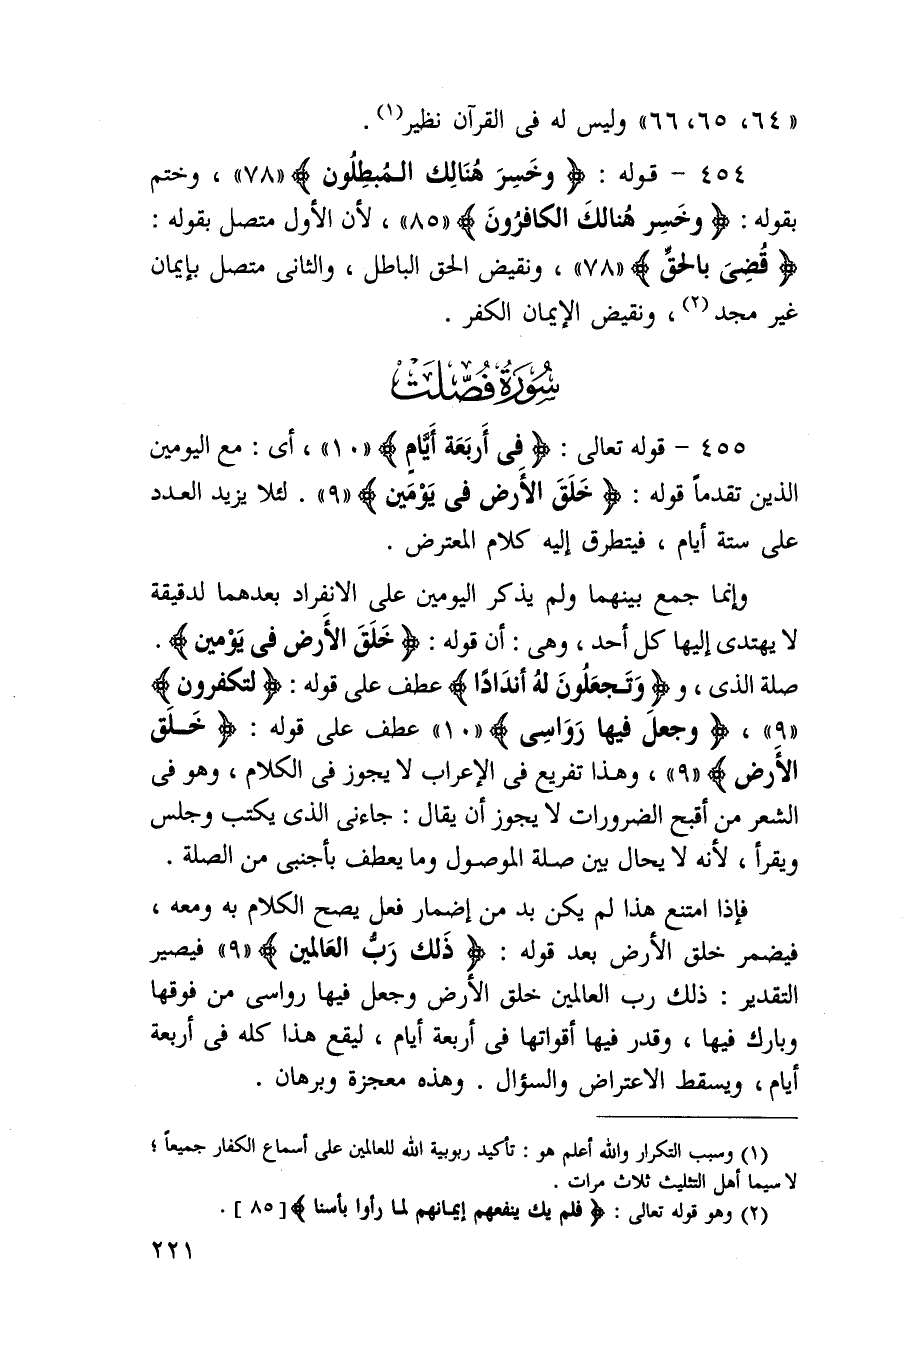 « ٦٤، ٦٥، ٦٦» وليس له فى القرآن نظير(١) .
٤٥٤ - قوله : ﴿ وخَسِرَ هُنَالِك المُبطِلُون ﴾ «٧٨» ، وختم
بقوله : ﴿ وخَسِر هُنالكَ الكافرُونَ ﴾ «٨٥» ، لأن الأول متصل بقوله :
﴿ قُضِىَ بالحَقِّ ﴾ «٧٨» ، ونقيض الحق الباطل ، والثانى متصل بإيمان
غير مجد(٢) ، ونقيض الإيمان الكفر .
سُورَةُ فُصِّلَتْ
٤٥٥ - قوله تعالى : ﴿ فِى أَربَعَة أَيَّامٍ ﴾ «١٠» ، أى : مع اليومين
الذين تقدماً قوله : ﴿ خَلَقَ الأَرض فى يَوْمَين ﴾ «٩» . لئلا يزيد العدد
على ستة أيام ، فيتطرق إليه كلام المعترض .
وإنما جمع بينهما ولم يذكر اليومين على الانفراد بعدهما لدقيقة
لا يهتدى إليها كل أحد ، وهى : أن قوله : ﴿ خَلَقَ الأَرض فى يَوْمين ﴾ .
صلة الذى ، و ﴿ وَتَجعَلُونَ لهُ أندَادًا ﴾ عطف على قوله : ﴿ لتكفرون ﴾
«٩» ، ﴿ وجعلَ فيها رَوَاسِى ﴾ «١٠» عطف على قوله : ﴿ خَلَق
الأَرض ﴾ «٩» ، وهذا تفريع فى الإعراب لا يجوز فى الكلام ، وهو فى
الشعر من أقبح الضرورات لا يجوز أن يقال : جاءنى الذى يكتب وجلس
ويقرأ ، لأنه لا يحال بين صلة الموصول وما يعطف بأجنبى من الصلة .
فإذا امتنع هذا لم يكن بد من إضمار فعل يصح الكلام به ومعه ،
فيضمر خلق الأرض بعد قوله : ﴿ ذَلك رَبُّ العَالمين ﴾ «٩» فيصير
التقدير : ذلك رب العالمين خلق الأرض وجعل فيها رواسى من فوقها
وبارك فيها ، وقدر فيها أقواتها فى أربعة أيام ، ليقع هذا كله فى أربعة
أيام ، ويسقط الاعتراض والسؤال . وهذه معجزة وبرهان .
(١) وسبب التكرار والله أعلم هو : تأكيد ربوبية الله للعالمين على أسماع الكفار جميعاً ؛
لا سيما أهل التثليث ثلاث مرات .
(٢) وهو قوله تعالى : ﴿ فلم يك ينفعهم إيمانهم لما رأوا بأسنا ﴾ [ ٨٥ ] .
٢٢١